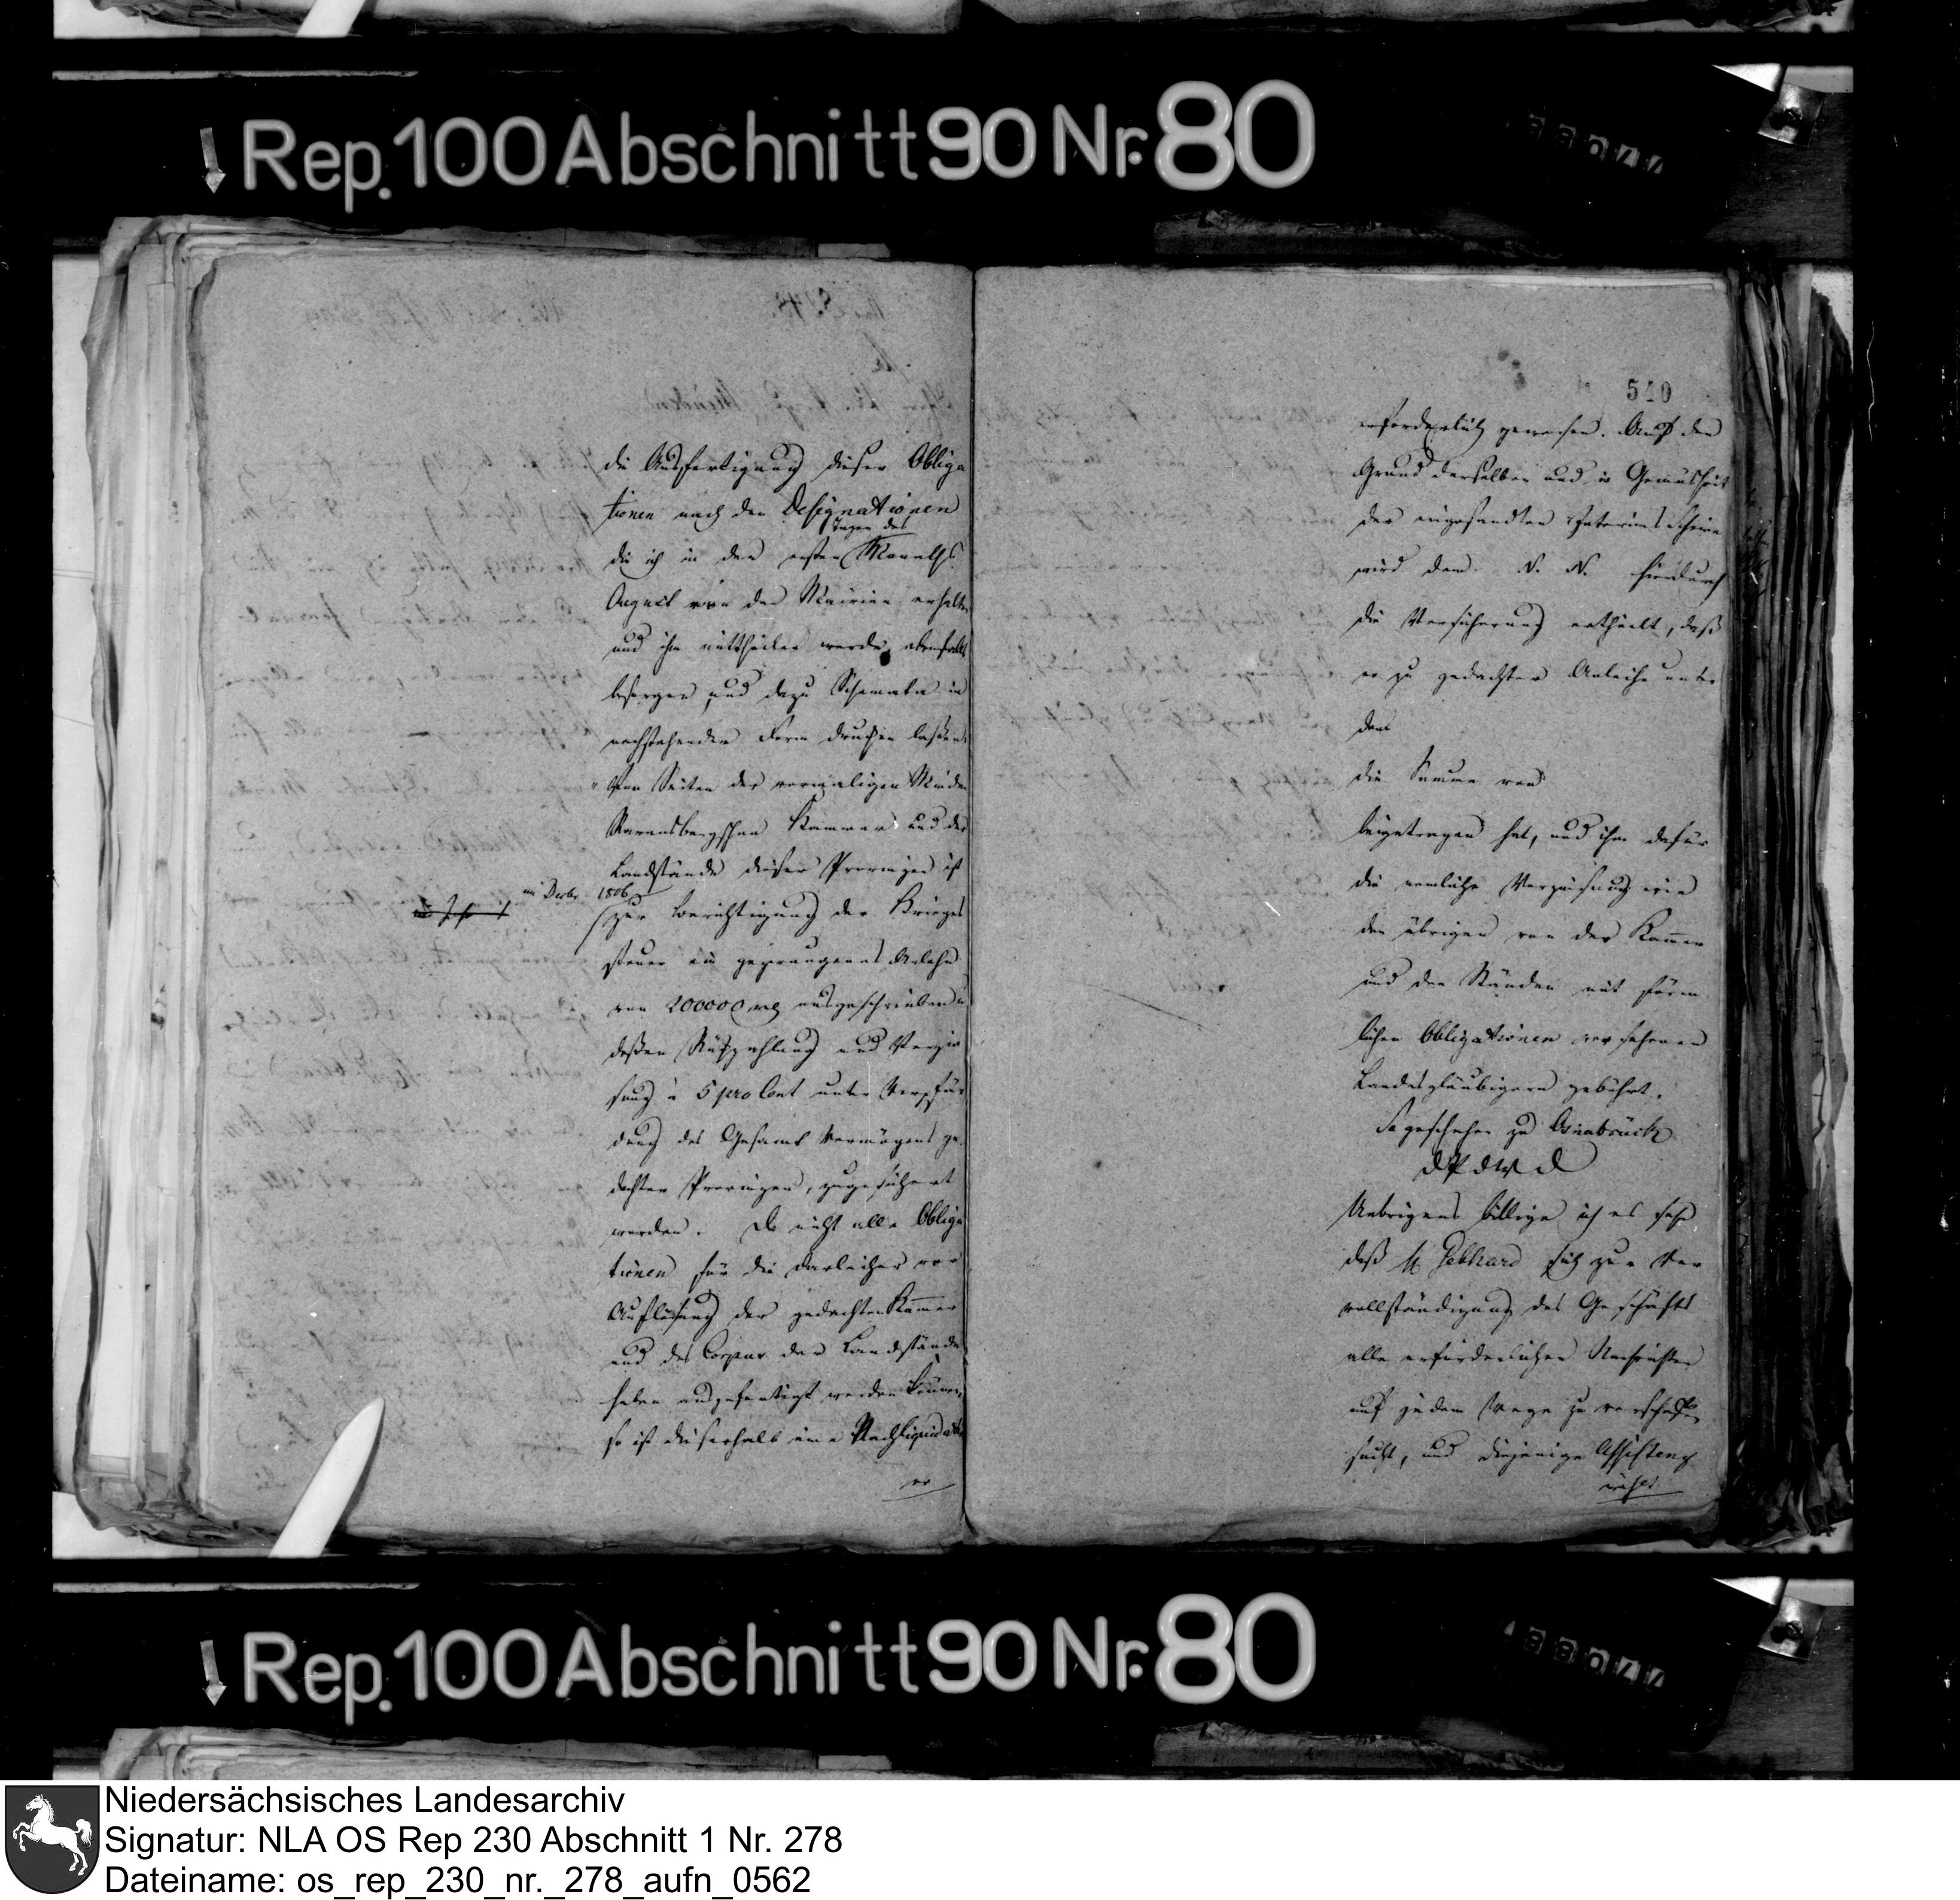 Rep. 100 Abschnitt 90 Nr. 80
die Ausfertigung dieser Obliga
tionen nach den Designationen
die ich in den ersten Tagen des Monaths
August von den Mairien erhalten
und ihm mittheilen werde, ebenfalls
besorgen, und dazu Schemata in
nachstehender Form drucken laßen.
"Von Seiten der vormaligen Minden
Ravensbergschen Kammer und der
Landstände dieser Provinzen ist
im Decbr 1806
zur Berichtigung der Krieges
steuer ein gezwungenes Anlehn
von 200000 rl ausgeschrieben u
deßen Rückzahlung und Verzin
sung à 5 pro Cent unter Verpfän
dung des Gesamt Vermögens ge
dachter Provinzen, zugesichert
worden. Da nicht alle Obliga
tionen für die Darleiher vor
Auflösung der gedachten Kammer
und des Corpus der Landstände
haben ausgefertigt werden können,
so ist dieserhalb eine Nachliquidation
er
540
erforderlich gewesen. Auf den
Grund derselben und in Gemäsheit
der eingesandten Interims Scheine
wird dem N. N. hierdurch
die Versicherung ertheilt, daß
er zu gedachter Anleihe unter
dem
die Summe von
beigetragen hat, und ihm dafür
die nemliche Verzinsung wie
den übrigen von der Kammer
und den Ständen mit förm
lichen Obligationen versehenen
Landesgläubigern gebührt.
So geschehen zu Osnabrück
Uebrigens billige ich es sehr
daß H Gebhard sich zur Ver
vollständigung des Geschäfts
alle erforderlichen Nachrichten
auf jedem Wege zu verschaffen
sucht, und diejenige Assistenz
Rep. 100 Abschnitt 90 Nr. 80
Niedersächsisches Landesarchiv
Signatur: NLA OS Rep 230 Abschnitt 1 Nr. 278
Dateiname: os_rep_230_nr._278_aufn_0562